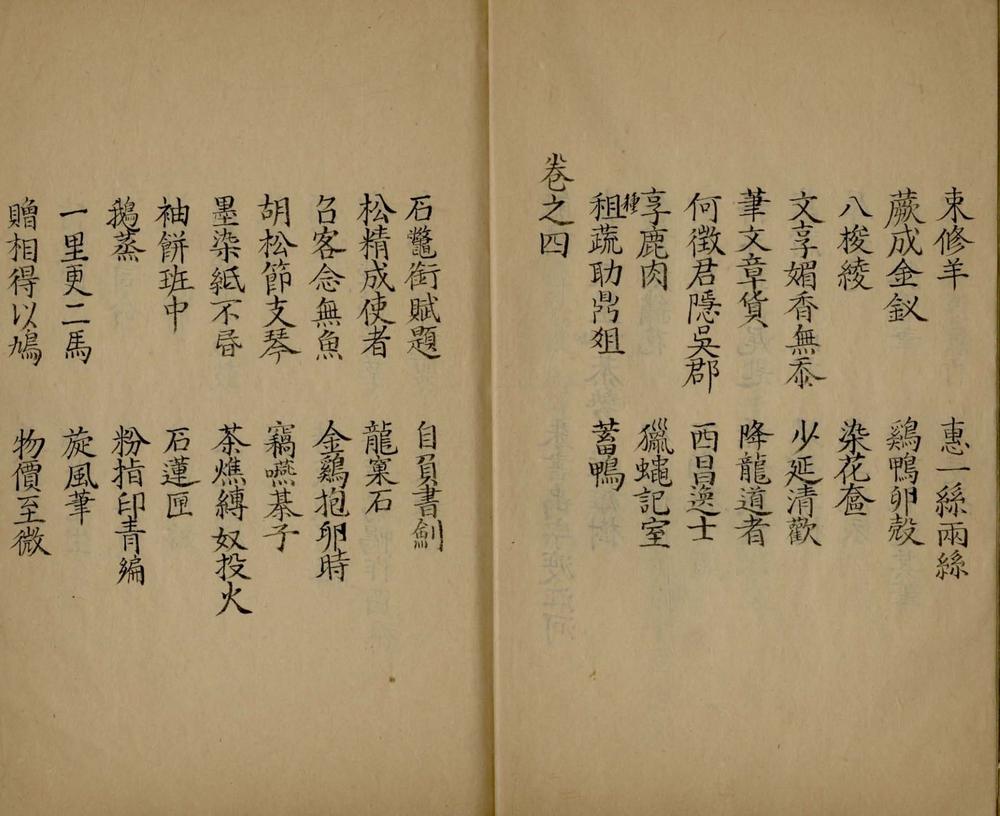 束修羊 惠一絲兩絲
蕨成金釵 鷄鴨卵殼
八梭綾 染花奩
文享媚香無忝 少延清歡
筆文章貨 降龍道者
何徵君隱吳郡 西昌逸士
享鹿肉 獵蠅記室
租種蔬助鼎俎 蓄鴨
卷之四
石鼈銜賦題 自負書劍
松精成使者 龍窠石
召客念無魚 金鷄抱卵時
胡松節支琴 竊嚥棊子
墨染紙不昏 茶燋縛奴投火
袖餅班中 石蓮匣
鵝蒸 粉指印青編
一里更二馬 旋風筆
贈相得以鳩 物價至微